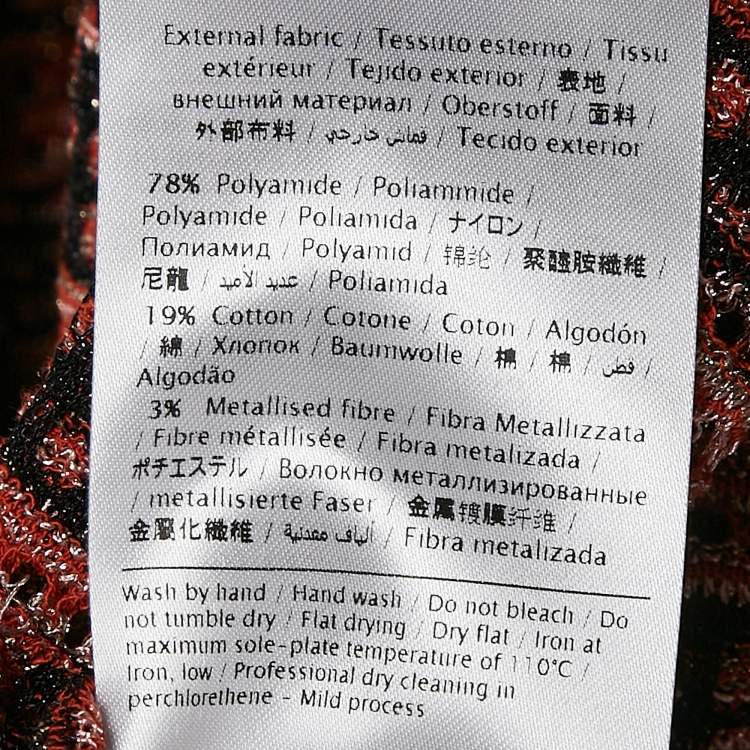 External fabric / Tessuto esterno / Tissu
extérieur / Tejido exterior / 表地 /
внешний материал / Oberstoff / 面料 /
外部布料 / قماش خارجي / Tecido exterior
78% Polyamide / Poliammide /
Polyamide / Poliamida / ナイロン /
Полиамид / Polyamid / 锦纶 / 聚醯胺纖維 /
尼龍 / عديد الأميد / Poliamida
19% Cotton / Cotone / Coton / Algodón
/ 綿 / Хлопок / Baumwolle / 棉 / 棉 / قطن /
Algodão
3% Metallised fibre / Fibra Metallizzata
/ Fibre métallisée / Fibra metalizada /
ポチエステル / Волокно металлизированные
/ metallisierte Faser / 金属镀膜纤维 /
金屬化纖維 / ألياف معدنية / Fibra metalizada
Wash by hand / Hand wash / Do not bleach / Do
not tumble dry / Flat drying / Dry flat / Iron at
maximum sole-plate temperature of 110°C /
Iron, low / Professional dry cleaning in
perchlorethene - Mild process